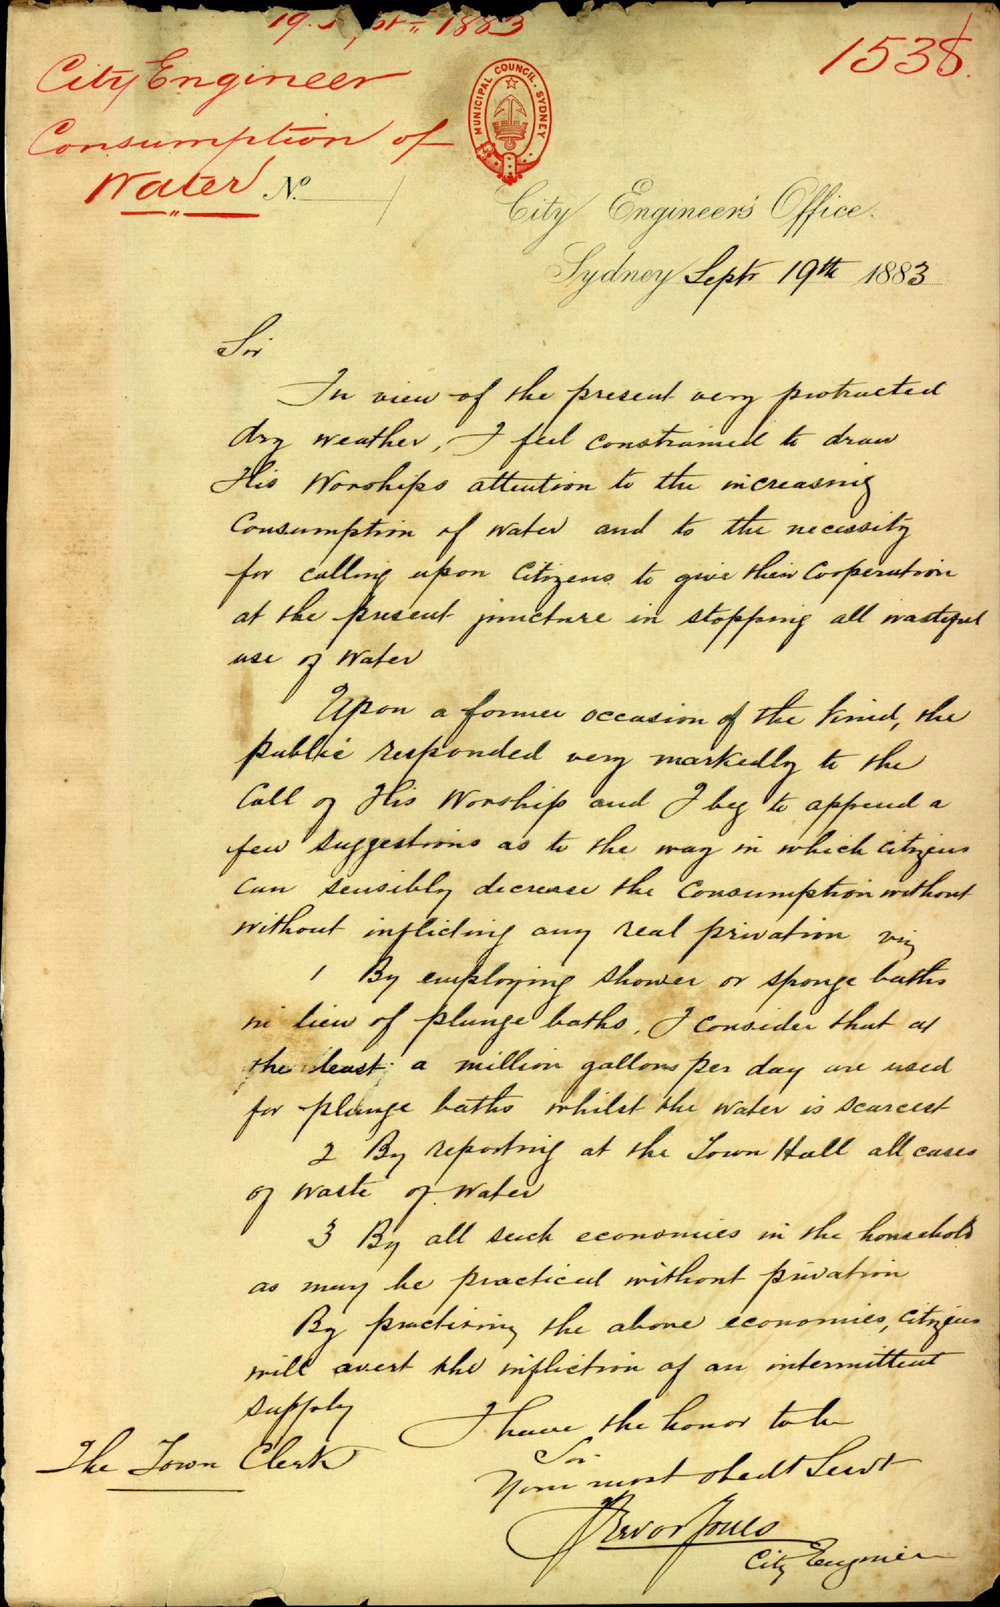 19. Septr 1883
1538.
City Engineer
Consumption of
Water
MUNICIPAL COUNCIL. SYDNEY
No.
City Engineer's Office.
Sydney Septr 19th 1883
Sir
In view of the present very protracted
dry weather, I feel constrained to draw
His Worships attention to the increasing
Consumption of water and to the necessity
for calling upon Citizens to give their Cooperation
at the present juncture in stopping all wasteful
use of water
Upon a former occasion of the kind, the
public responded very markedly to the
Call of His Worship and I beg to append a
few suggestions as to the way in which Citizens
Can sensibly decrease the Consumption without
without inflicting any real privation viz
1 By employing shower or sponge baths
in lieu of plunge baths. I consider that at
the least a million gallons per day are used
for plunge baths whilst the water is scarcest
2 By reporting at the Town Hall all cases
of waste of water
3 By all such economies in the household
as may be practiced without privation
By practising the above economies, Citizens
will avert the infliction of an intermittent
supply
I have the honor to be
Sir
Your most obedt Servt
Trevor Jones
City Engineer
The Town Clerk